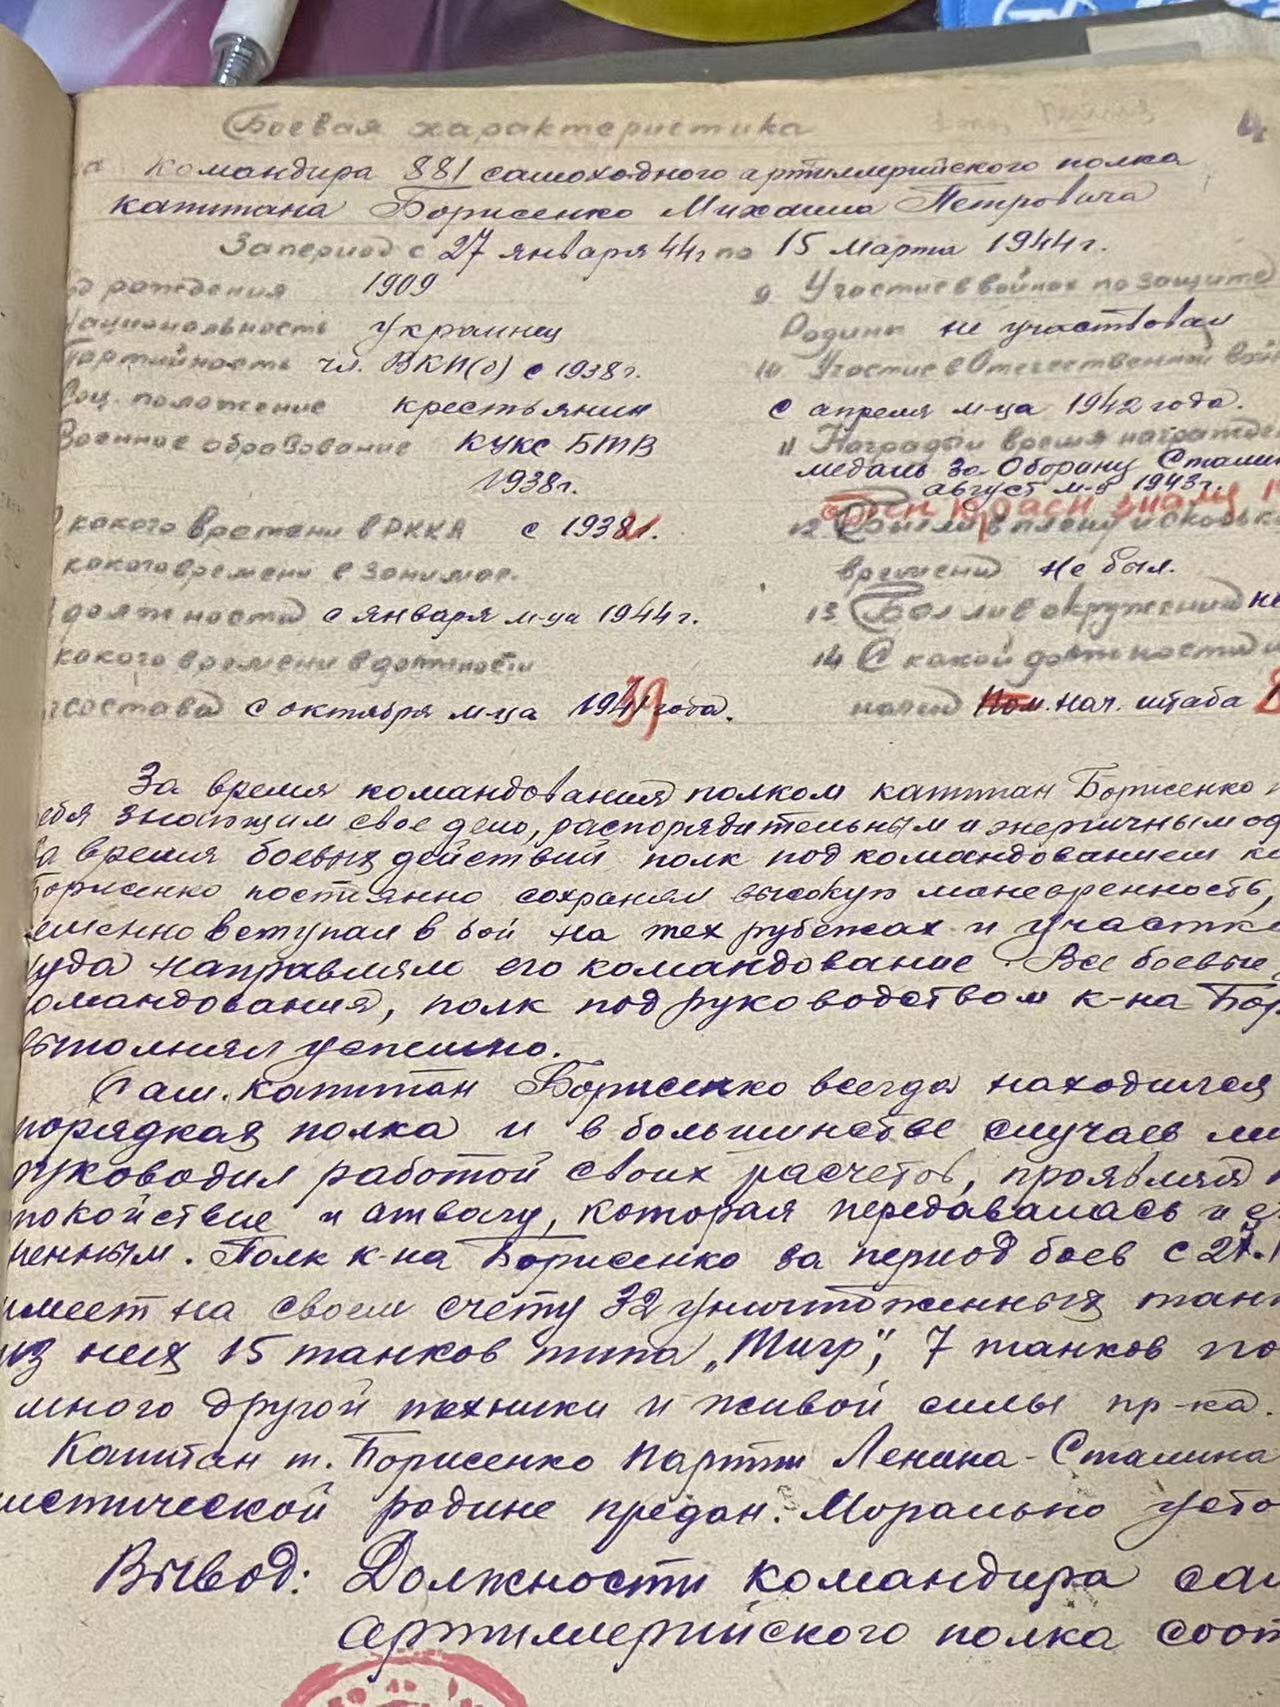 Боевая характеристика
4
командира 881 самоходного артиллерийского полка
капитана Борисенко Михаила Петровича
За период с 27 января 44г по 15 марта 1944г.
рождения 1909
национальность украинец
Партийность чл. ВКП(б) с 1938г.
Соц. положение крестьянин
Военное образование КУКС БТВ
1938г.
какого времени в РККА с 193 г.
какого времени в занимае.
должности с января м-ца 1944г.
какого времени в должности
состава с октября м-ца года.
9 Участие в войнах по защите
Родины не участвовал
10 Участие в Отечественной вой
с апреля м-ца 1942 года.
11 Награды и время награжде
медаль За Оборону Сталин
август м-ц 1943г.
орден красн знамя
12 Был ли в плену и сколько
времени Не был.
13 Был ли в окружении не
14 С какой должности
начен Пом. нач. штаба 8
За время командования полком капитан Борисенко
ебя знающим свое дело, распорядительным и энергичным оф
а время боевых действий полк под командованием к
Борисенко постоянно сохранял высокую маневренность,
еменно вступал в бой на тех рубежах и участк
уда направляло его командование. Все боевые
омандования, полк под руководством к-на Бор
выполнял успешно.
Сам. капитан Борисенко всегда находился
порядках полка и в большинстве случаев ли
руководил работой своих расчетов, проявляя
покойствие и отвагу, которая передавалась и
ненным. Полк к-на Борисенко за период боев с 27.1
имеет на своем счету 32 уничтоженных танк
из них 15 танков типа „Тигр", 7 танков по
много другой техники и живой силы пр-ка.
Капитан т. Борисенко партии Ленина-Сталина
истической родине предан. Морально усто
Вывод: Должности командира сам
артиллерийского полка соот